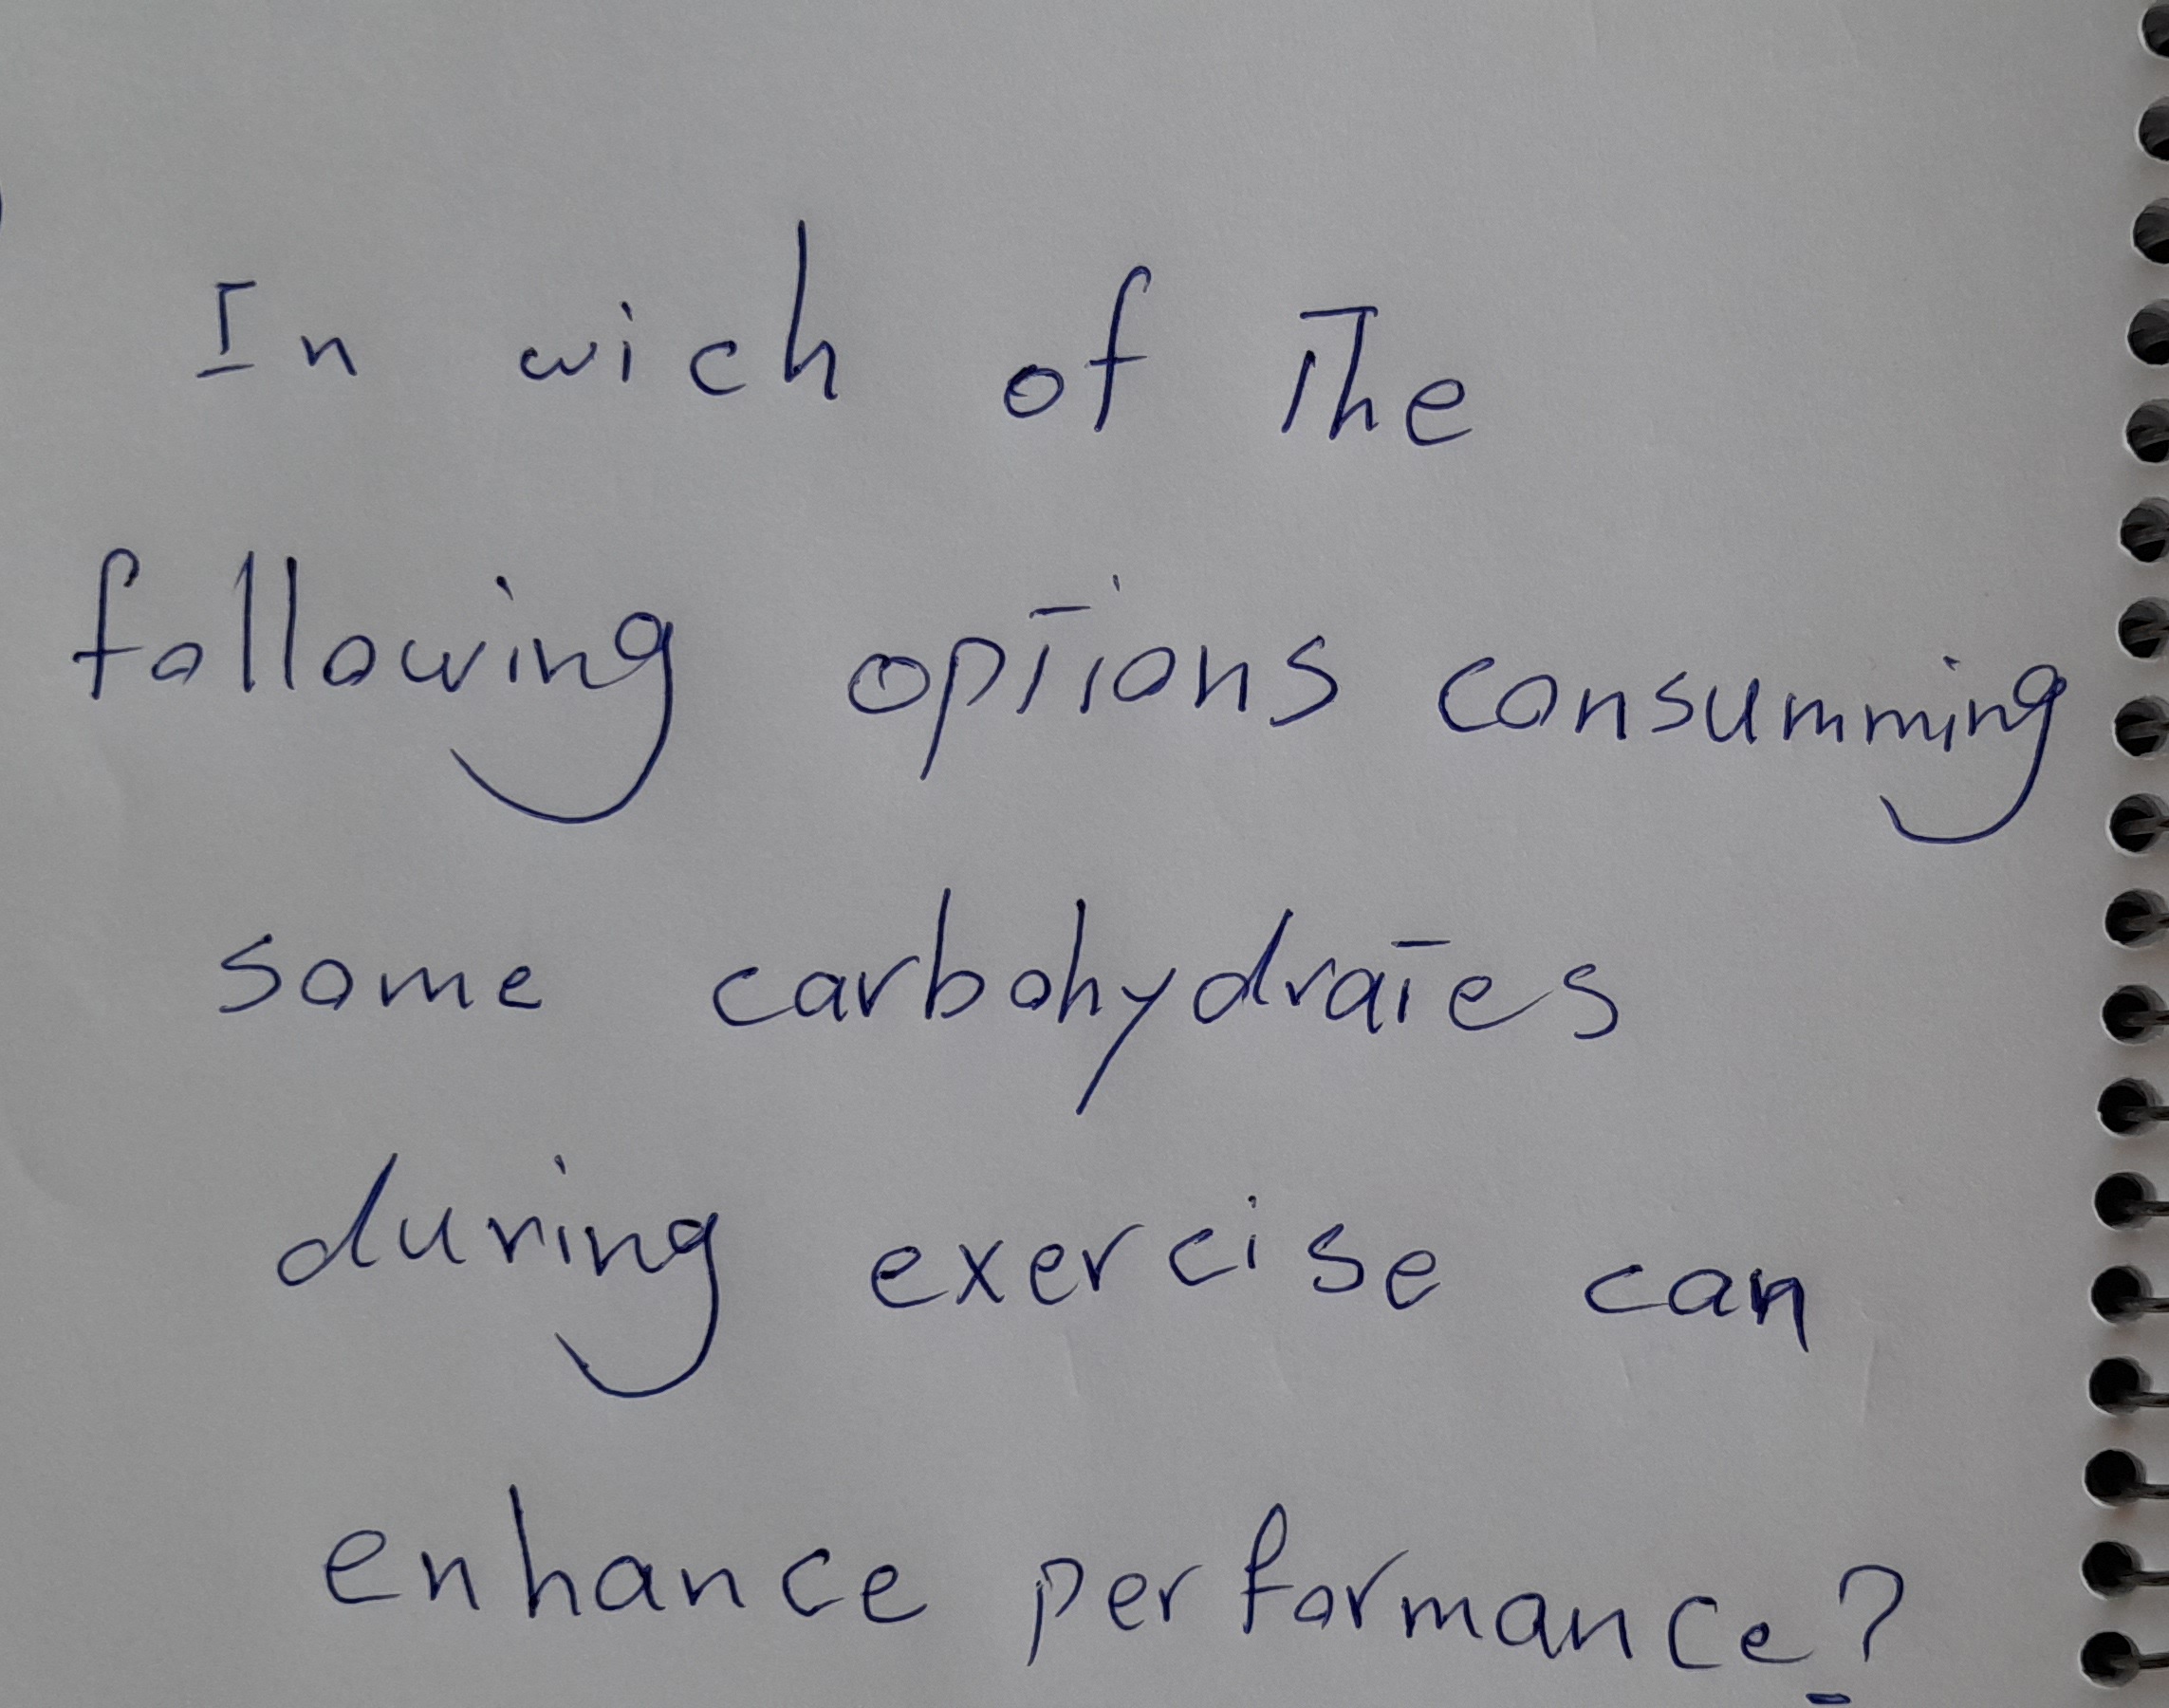 In wich of The
following options consumming
some carbohydrates
during exercise can
enhance performance?